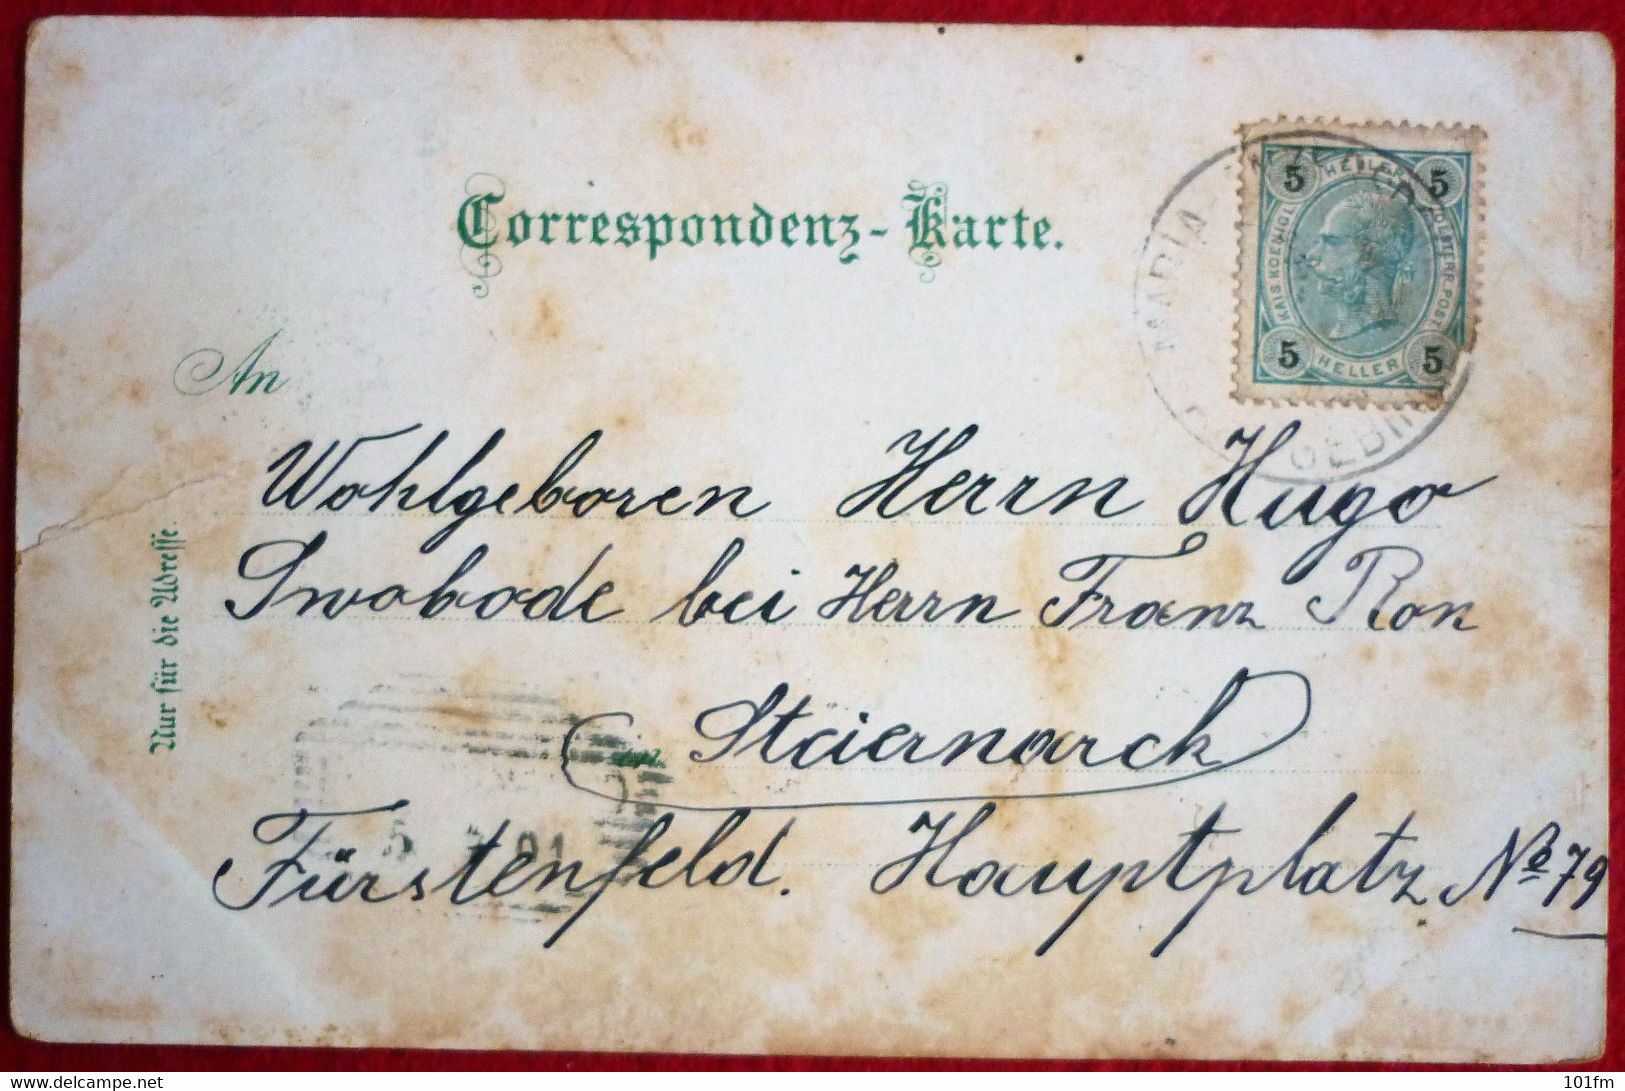 Correspondenz-Karte.
5 HELLER 5
KAIS. KOENIGL.
OESTERR. POST
5 HELLER 5
MARIA
GEBI
An
Wohlgeboren Herrn Hugo
Swobode bei Herrn Franz Ron
in Steiermarck
Fürstenfeld. Hauptplatz No 79
Nur für die Adresse.
01
delcampe.net
101fm